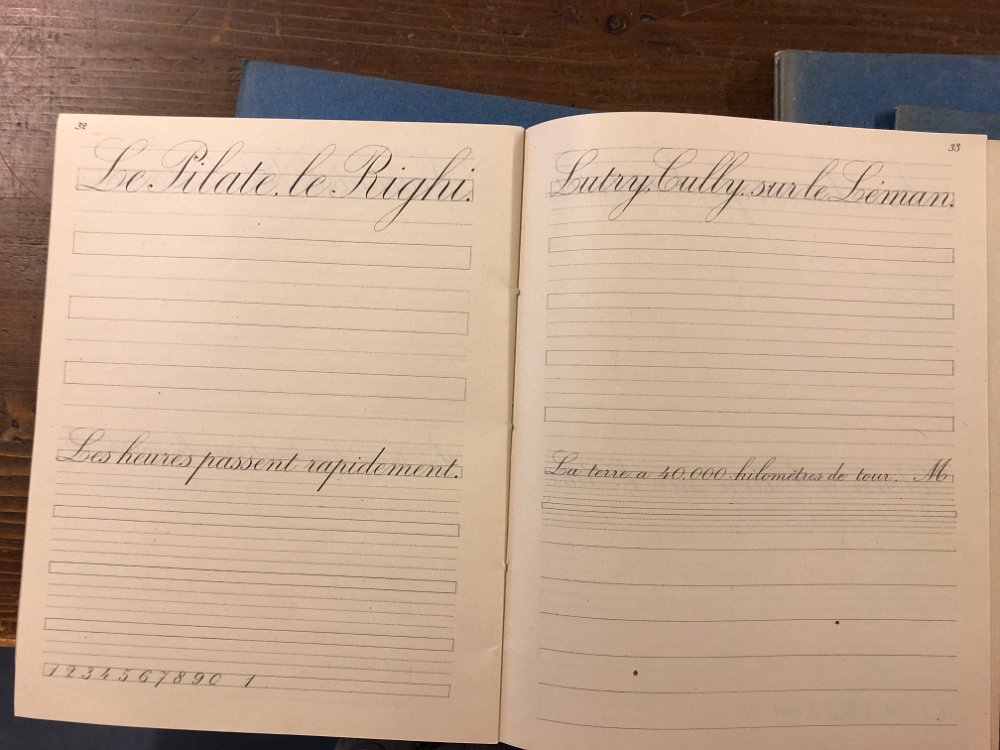 32
Le Pilate, le Righi.
Les heures passent rapidement.
1 2 3 4 5 6 7 8 9 0 1
33
Lutry, Cully, sur le Léman.
La terre a 40,000 kilomètres de tour. M